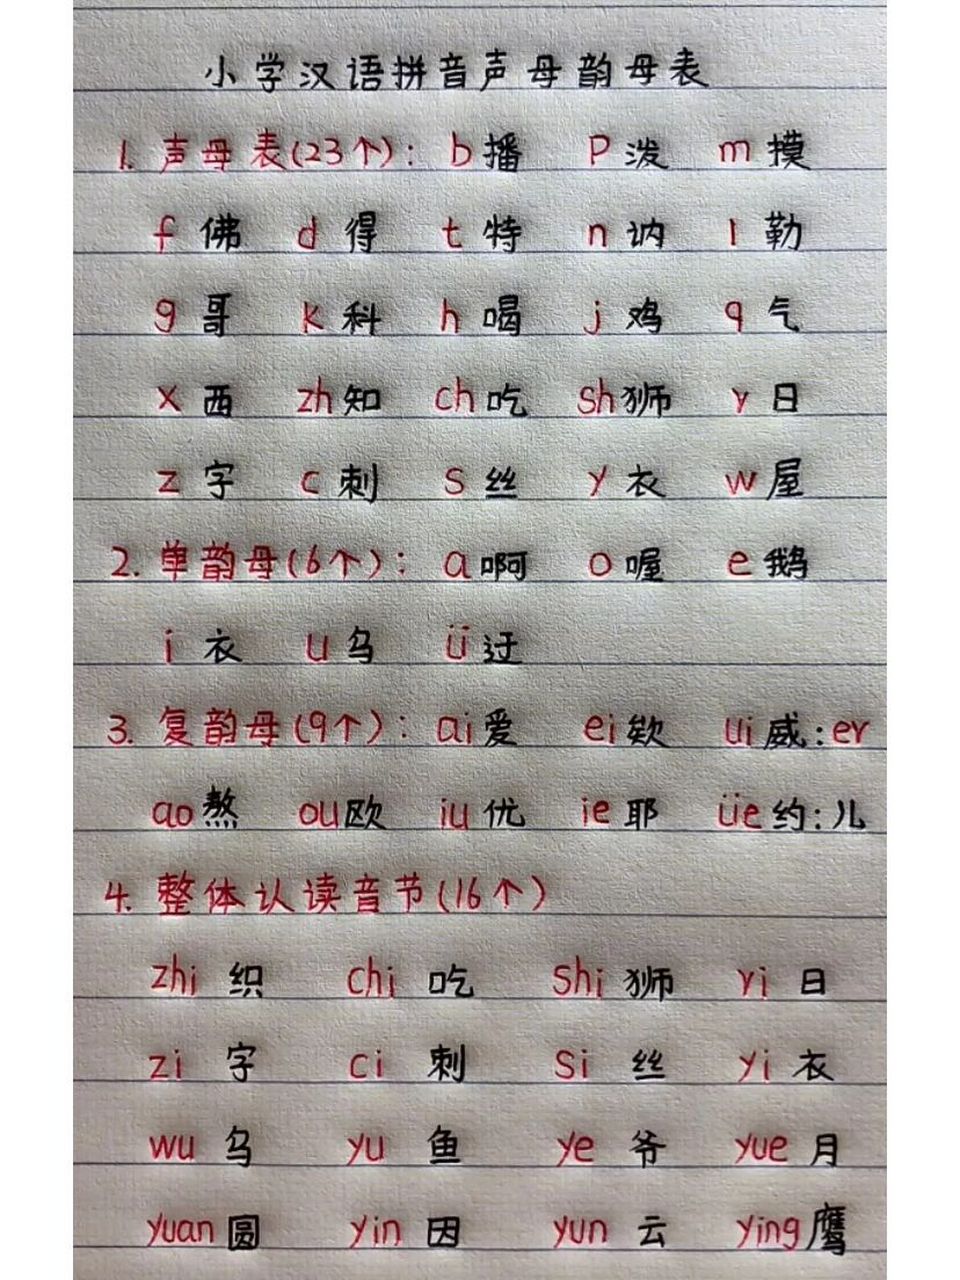 小学汉语拼音声母韵母表
1. 声母表(23个): b 播 p 泼 m 摸
f 佛 d 得 t 特 n 讷 l 勒
g 哥 k 科 h 喝 j 鸡 q 气
x 西 zh 知 ch 吃 sh 狮 r 日
z 字 c 刺 s 丝 y 衣 w 屋
2. 单韵母(6个): a 啊 o 喔 e 鹅
i 衣 u 乌 ü 迂
3. 复韵母(9个): ai 爱 ei 欸 ui 威: er
ao 熬 ou 欧 iu 优 ie 耶 üe 约: 儿
4. 整体认读音节(16个)
zhi 织 chi 吃 shi 狮 ri 日
zi 字 ci 刺 si 丝 yi 衣
wu 乌 yu 鱼 ye 爷 yue 月
yuan 圆 yin 因 yun 云 ying 鹰